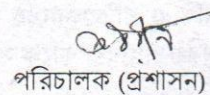 পরিচালক (প্রশাসন)